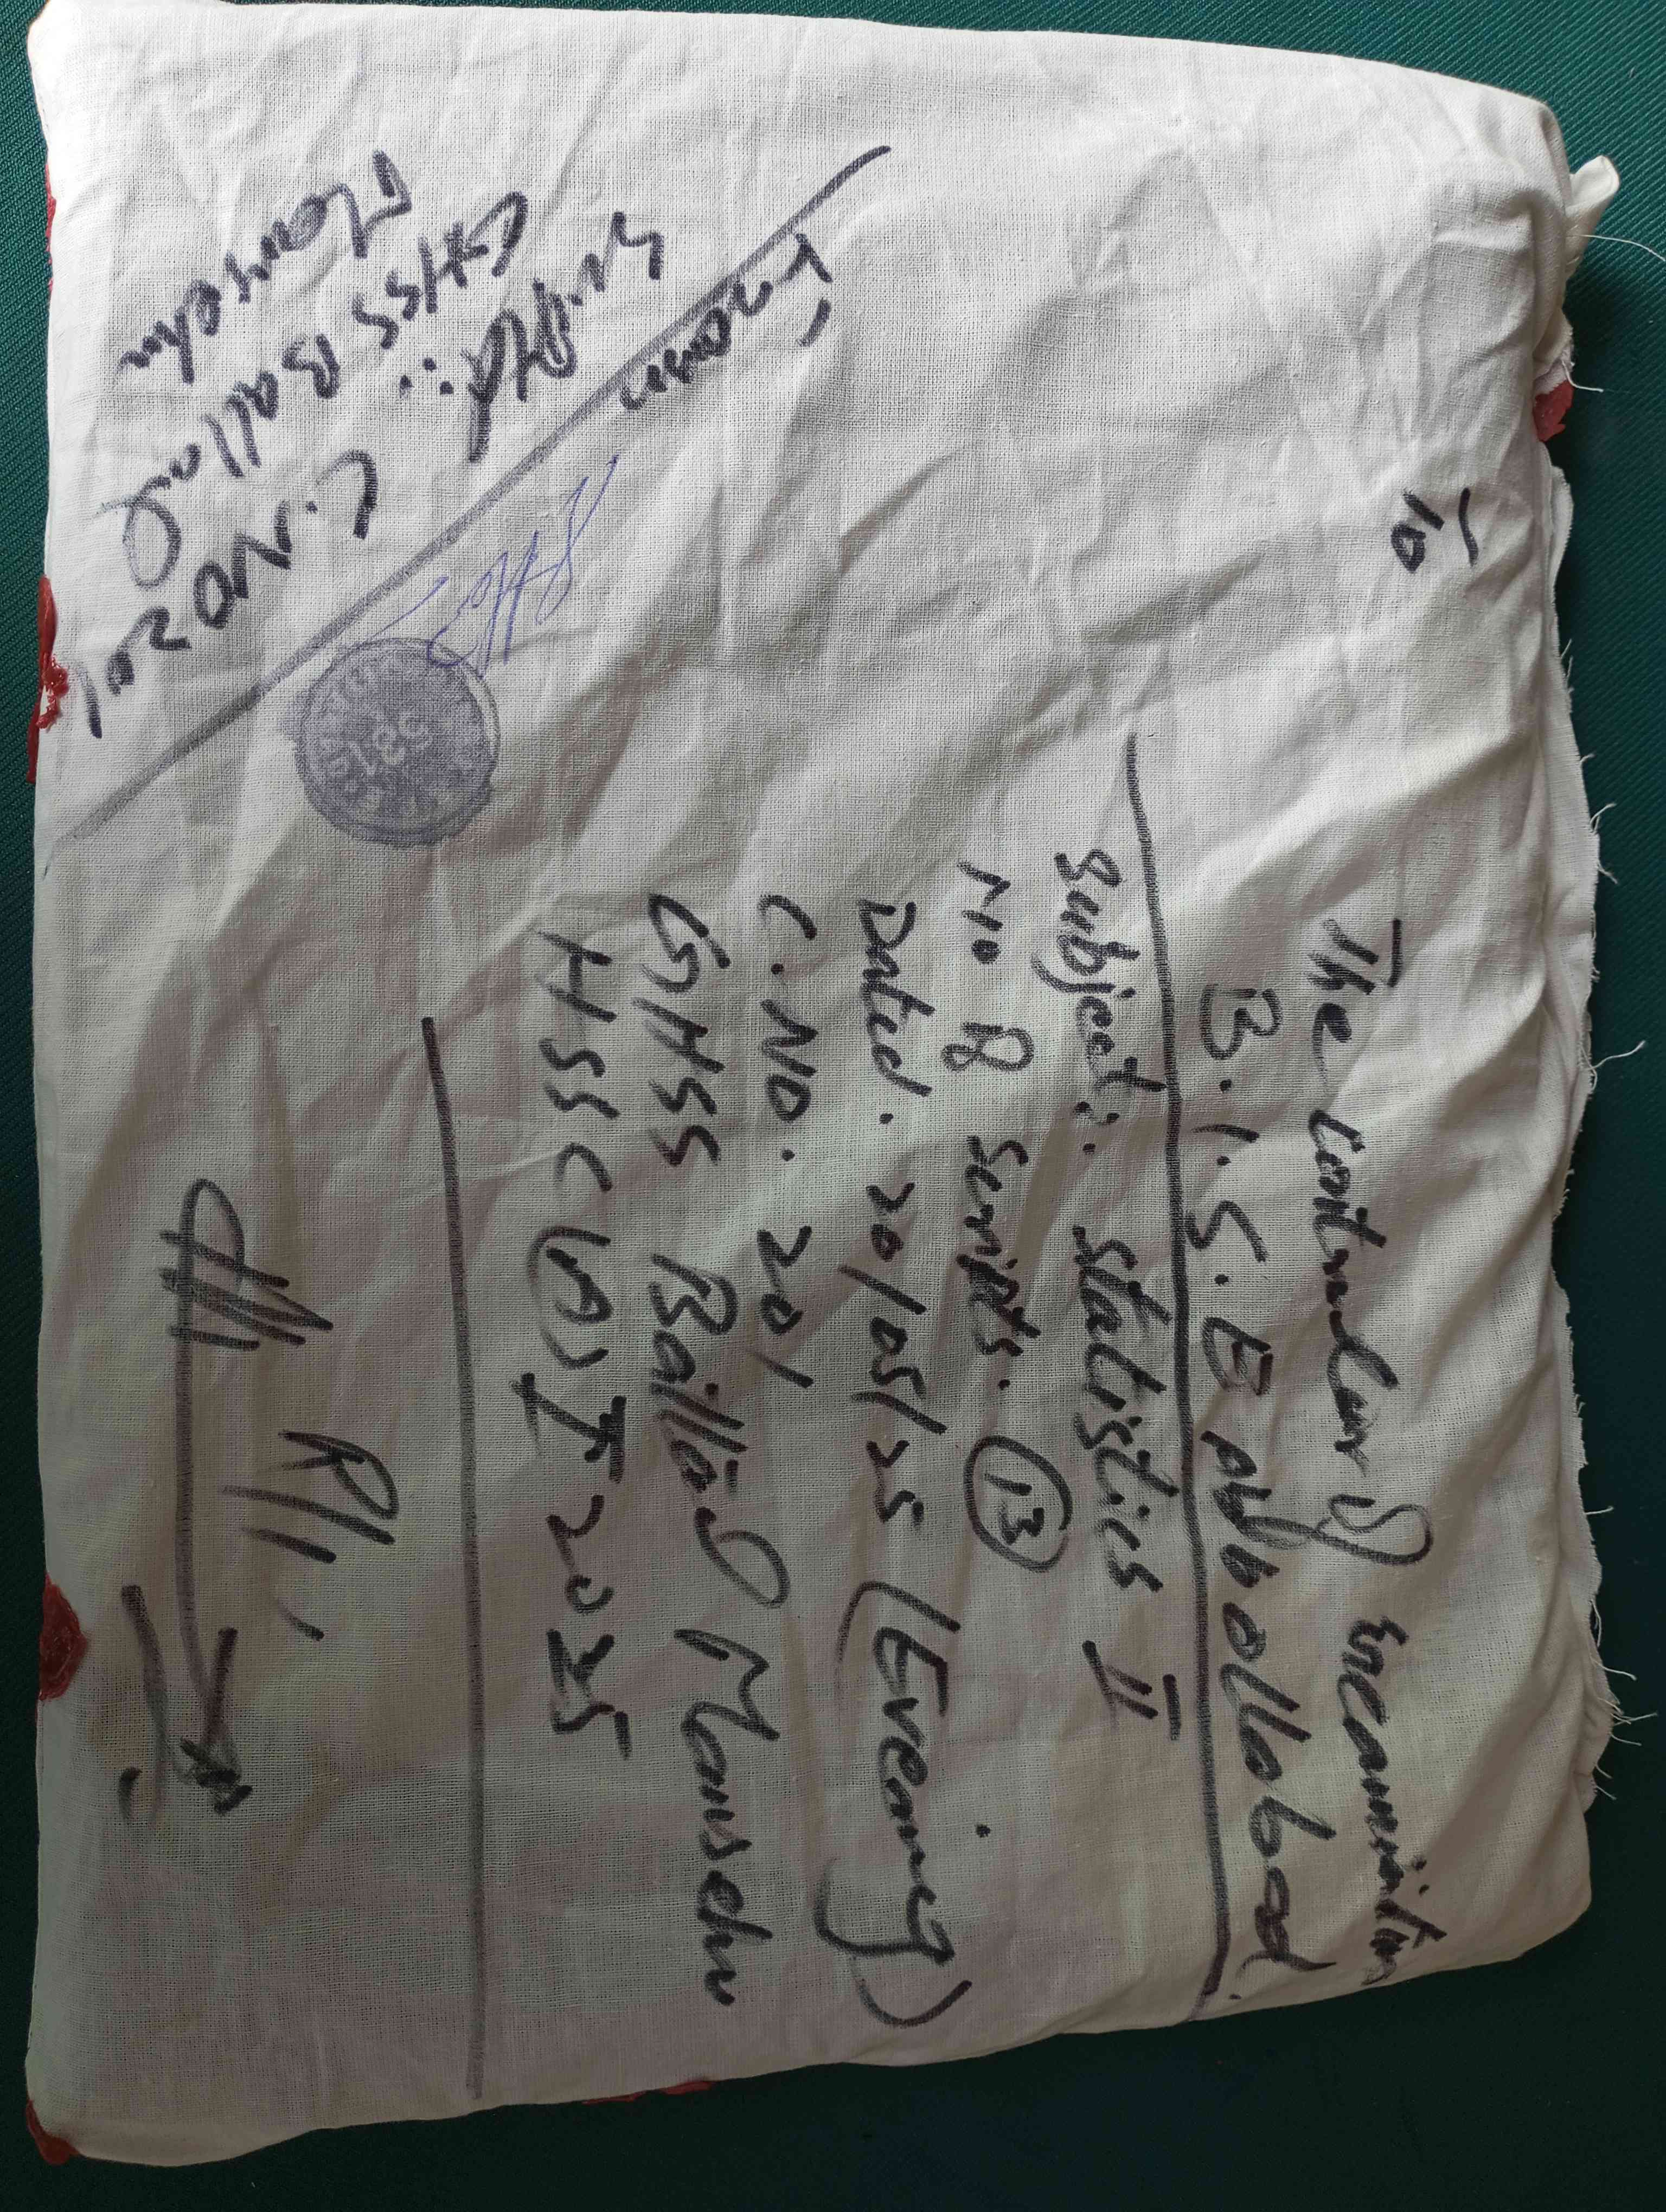 To
The Controller of Examination
B.I.S.E Abbottabad.
Subject: Statistics II
No of Scripts. 13
Dated. 20/05/25 (Evening)
C.NO. 201
GHSS Ballag Mansehr
HSSC (A) I 2025
From
C.NO 201
GHSS Ballag
Mansehr
531